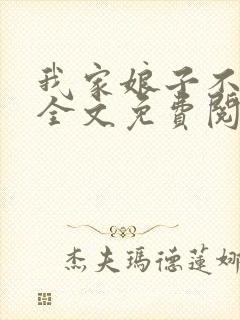 我家娘子不
全文免費閱
杰夫瑪德蓮娜